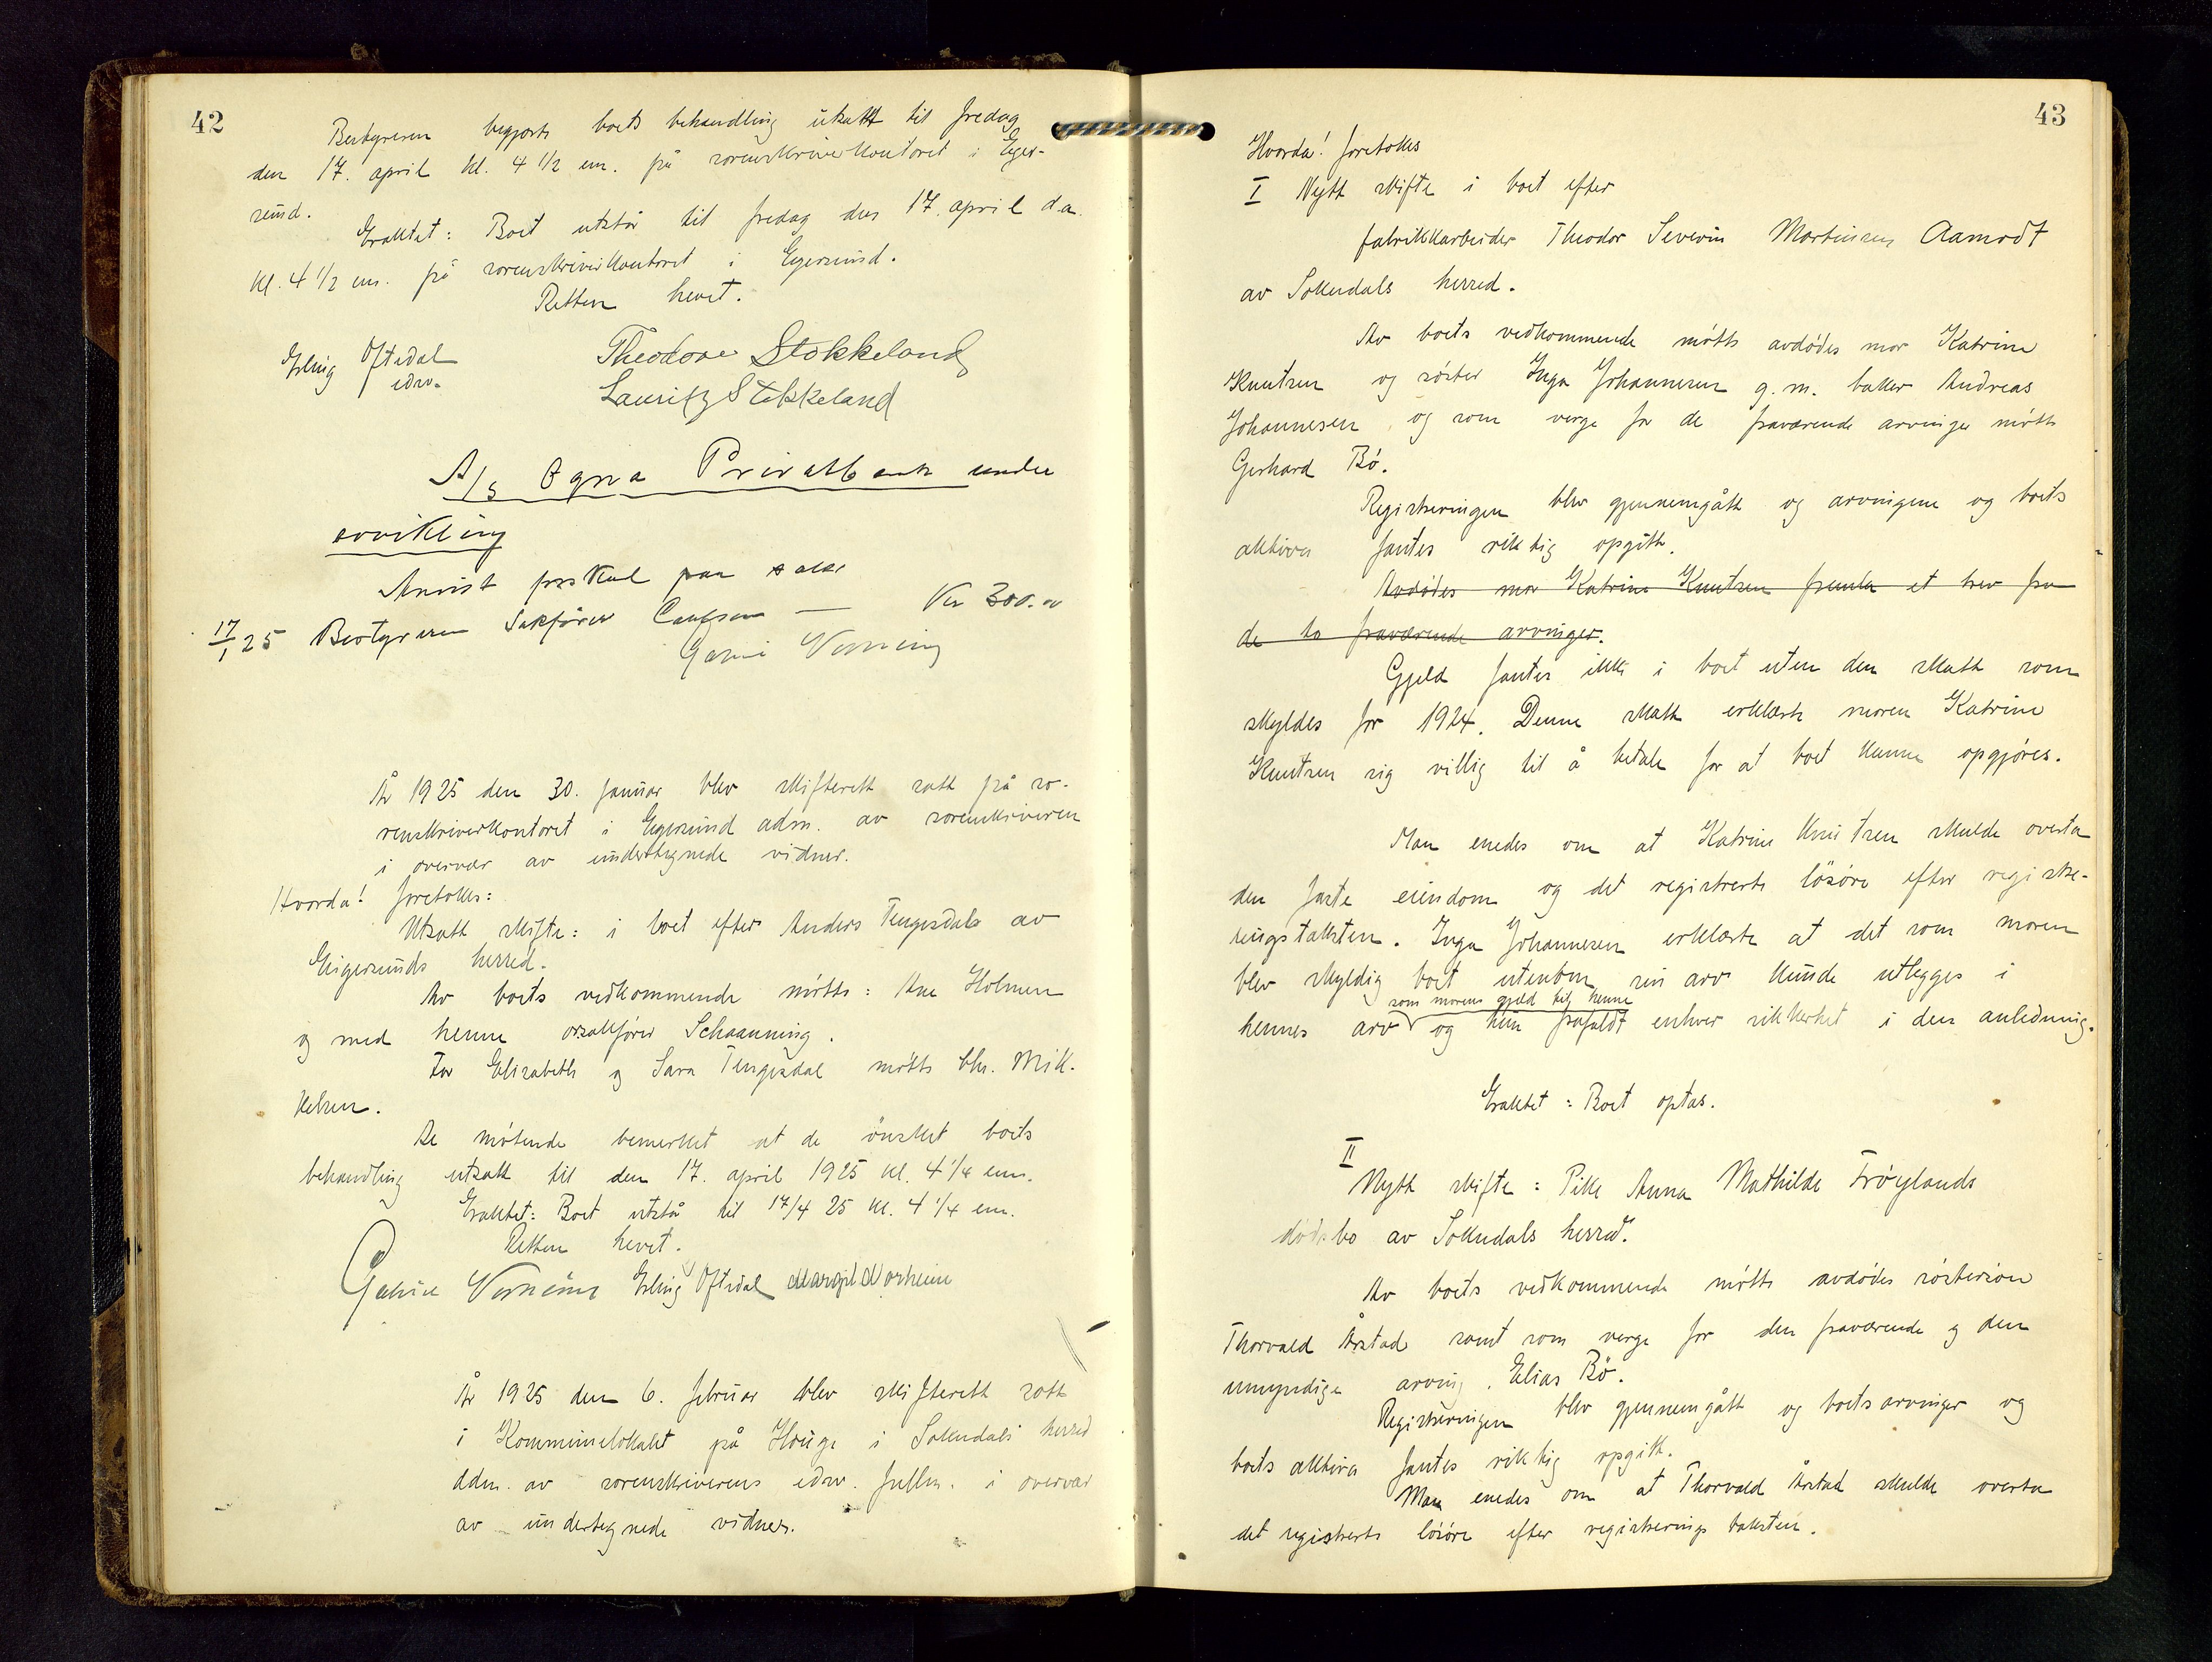 42
Bestyreren begjærte boets behandling utsatt til fredag
den 17. april kl. 4 1/2 em. på sorenskriverkontoret i Eger-
sund.
Eraktet: Boet utstår til fredag den 17. april d.a.
kl. 4 1/2 em. på sorenskriverkontoret i Egersund.
Retten hevet.
Erling Oftedal
edsv.
Theodore Stokkeland
Lauritz Stokkeland
A/s Ogna Privatbank under
avvikling
Anvist forskud paa salær
17/1 25 Bestyreren Sakfører — Kr 300.00
År 1925 den 30. januar blev skifterett satt på so-
renskriverkontoret i Egersund adm. av sorenskriveren
i overvær av undertegnede vidner.
Hvorda! foretokes:
Utsatt skifte: i boet efter Anders Tengesdal av
Eigersunds herred.
Av boets vedkommende møtte: Ane Holmen
og med henne orsakfører Schaanning.
For Elisabeth og Sara Tengesdal møtte bhr. Mik-
kelsen.
De møtende bemerket at de ønsket boets
behandling utsatt til den 17. april 1925 kl. 4 1/4 em.
Eraktet: Boet utstår til 17/4 25 kl. 4 1/4 em.
Retten hevet.
Erling Oftedal Margit Norheim
År 1925 den 6. februar blev skifterett satt
i Kommunelokalet på Hauge i Sokndals herred
adm. av sorenskriverens edsv. fullm. i overvær
av undertegnede vidner.
43
Hvorda! foretokes
I Nytt skifte i boet efter
fabrikkarbeider Theodor Severin Martinsen Aamodt
av Sokndals herred.
Av boets vedkommende møtte avdødes mor Katrine
Knutsen og søster Inga Johannesen g.m. baker Andreas
Johannesen og som verge for de fraværende arvinger møtte
Gerhard Bø.
Registreringen blev gjennemgått og arvingene og boets
aktiva fantes riktig opgitt.
Avdødes mor Katrine Knutsen fremla et brev fra
de to fraværende arvinger.
Gjeld fantes ikke i boet uten den skatt som
skyldes for 1924. Denne skatt erklærte moren Katrine
Knutsen sig villig til å betale for at boet kunne opgjøres.
Man enedes om at Katrine Knutsen skulde overta
den faste eiendom og det registrerte løsøre efter registre-
ringstaksten. Inga Johannesen erklærte at det som moren
blev skyldig boet utenom sin arv kunde utlegges i
som morens gjeld til henne
hennes arv og hun frafaldt enhver sikkerhet i den anledning.
Eraktet: Boet optas.
II
Nytt skifte: Pike Anna Mathilde Frøylands
dødsbo av Sokndals herred.
Av boets vedkommende møtte avdødes søstersøn
Thorvald Årstad samt som verge for den fraværende og den
umyndige arving, Elias Bø.
Registreringen blev gjennemgått og boets arvinger og
boets aktiva fantes riktig opgitt.
Man enedes om at Thorvald Årstad skulde overta
det registrerte løsøre efter registreringstaksten.